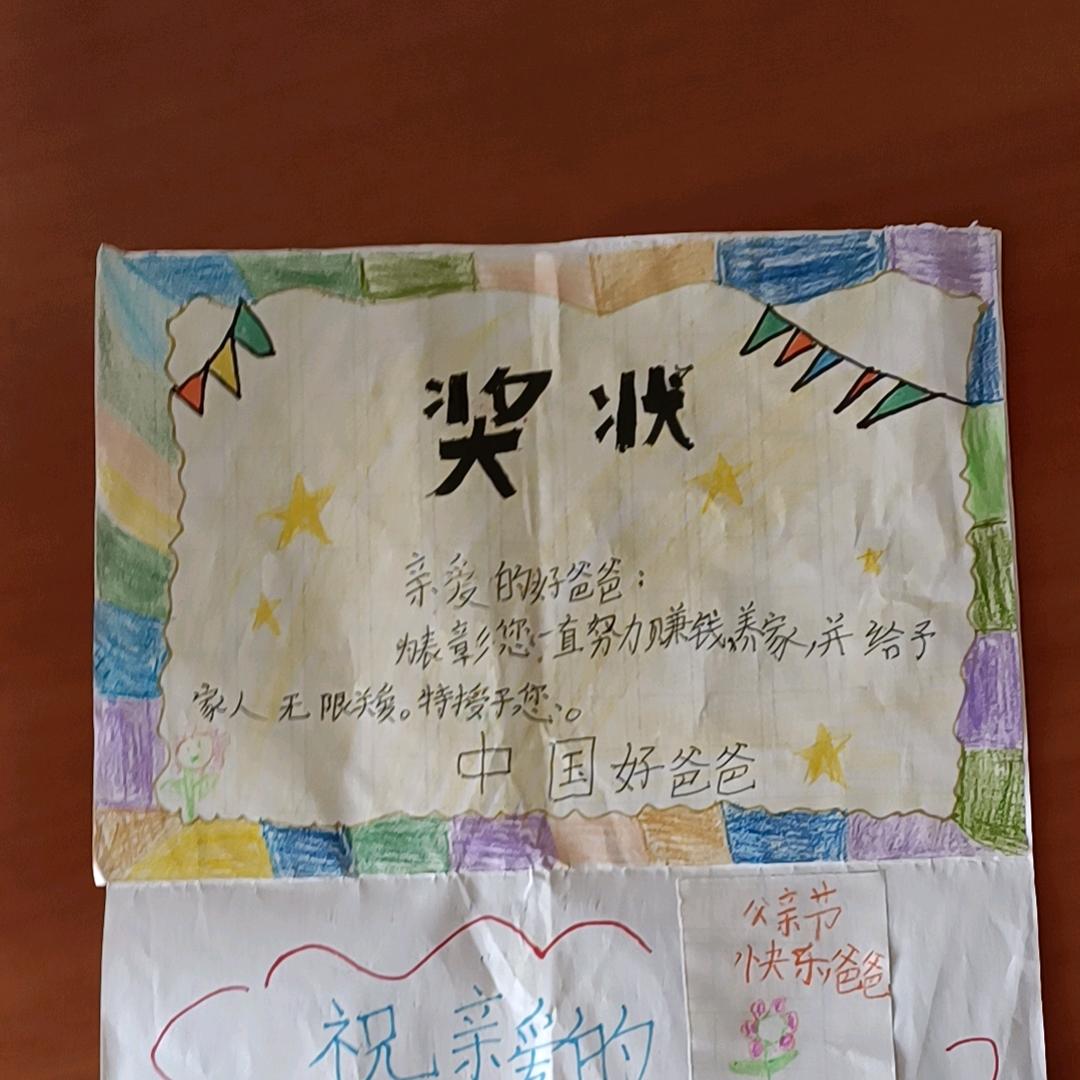 奖状
亲爱的好爸爸：
为表彰您一直努力赚钱养家,并给予
家人无限关爱。特授予您:。
中国好爸爸
父亲节
快乐,爸爸
祝亲爱的